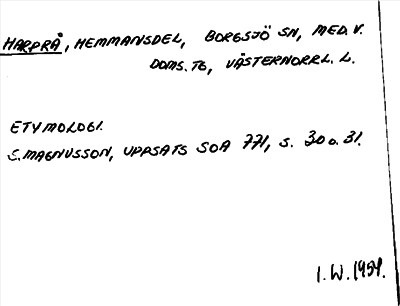 HARPRÅ, HEMMANSDEL, BORGSJÖ SN, MED. V.
DOMS. TG, VÄSTERNORRL. L.
ETYMOLOGI.
S. MAGNUSSON, UPPSATS SOA 771, S. 30 o. 31.
I. W. 1954.